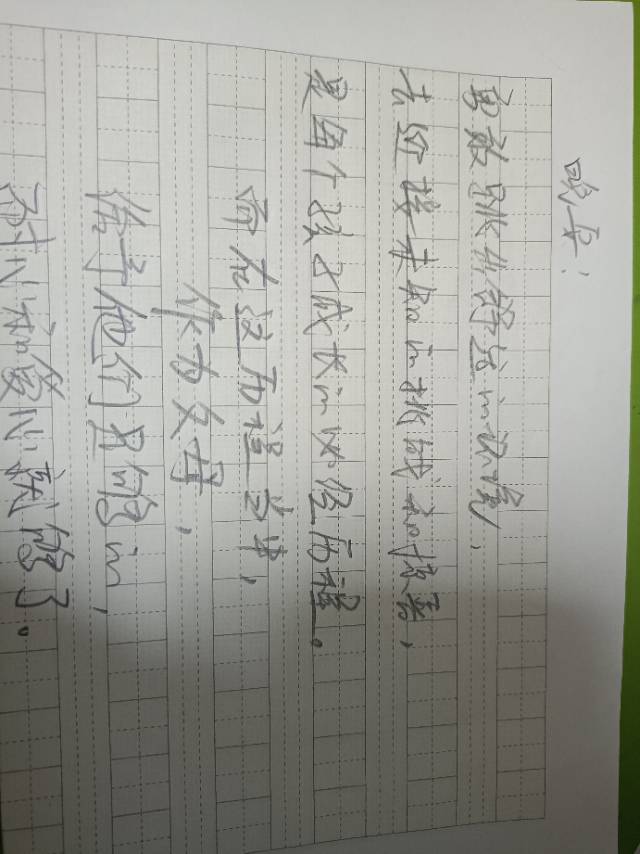 晚安:
勇敢跳出舒适的环境,
去迎接未知的挑战和惊喜,
是每个孩子成长的必经历程。
而在这历程当中,
作为父母,
给予他们足够的,
耐心和爱心就够了。